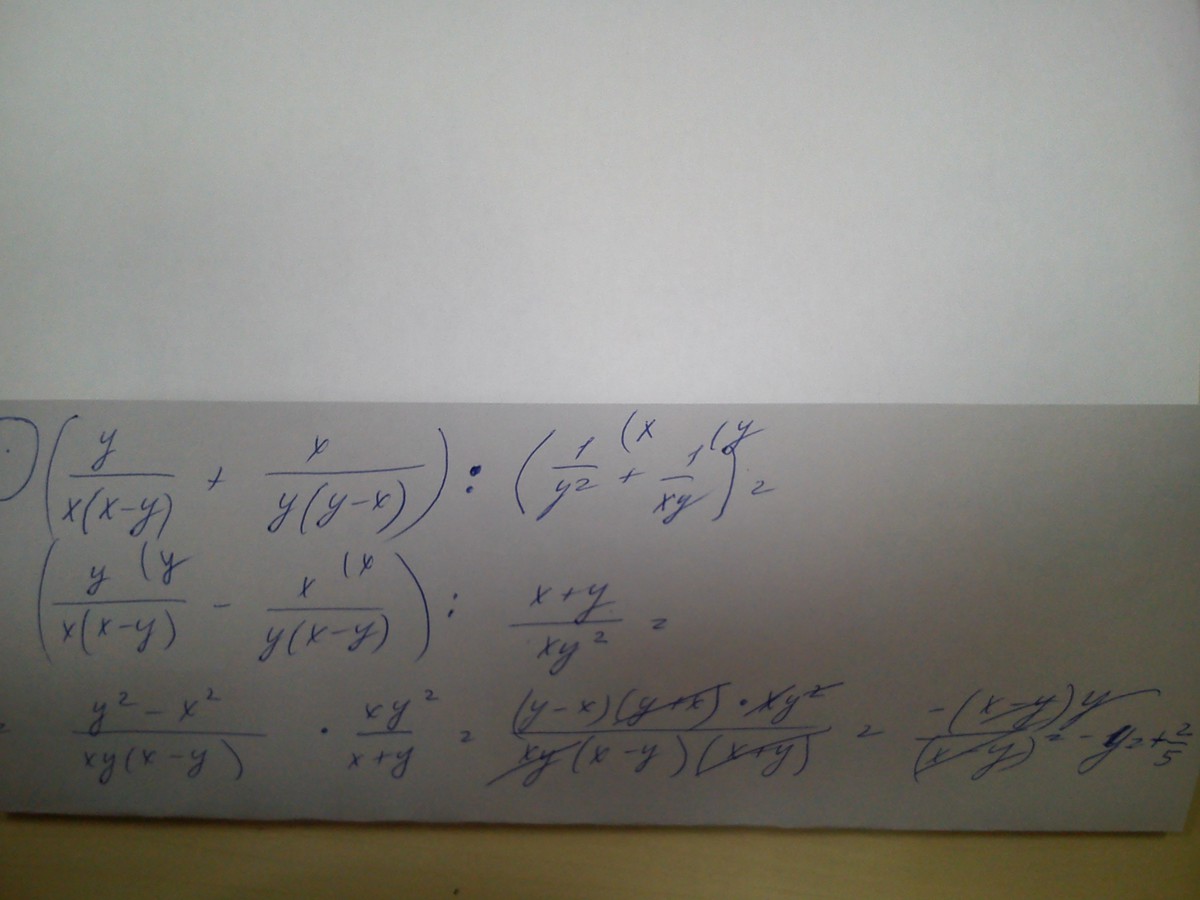 .) (y/(x(x-y)) + x/(y(y-x))) : (1/y² (x + 1/(xy) (y) =
(y (y/(x(x-y)) - x (x/(y(x-y))) : (x+y)/(xy²) =
= (y² - x²)/(xy(x-y)) · xy²/(x+y) = ((y-x)(y+x) · xy²)/(xy(x-y)(x+y)) = (-(x-y)y)/((x-y)) = -y = +2/5